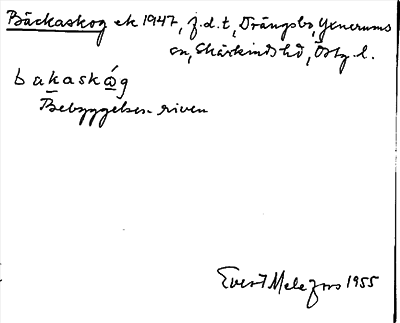 Bäckaskog ek 1947, f.d.t, Drängsbo, Yxnerums
sn, Skärkinds hd, Östg. l.
bakaskåg
Bebyggelsen riven
Evert Melefors 1955